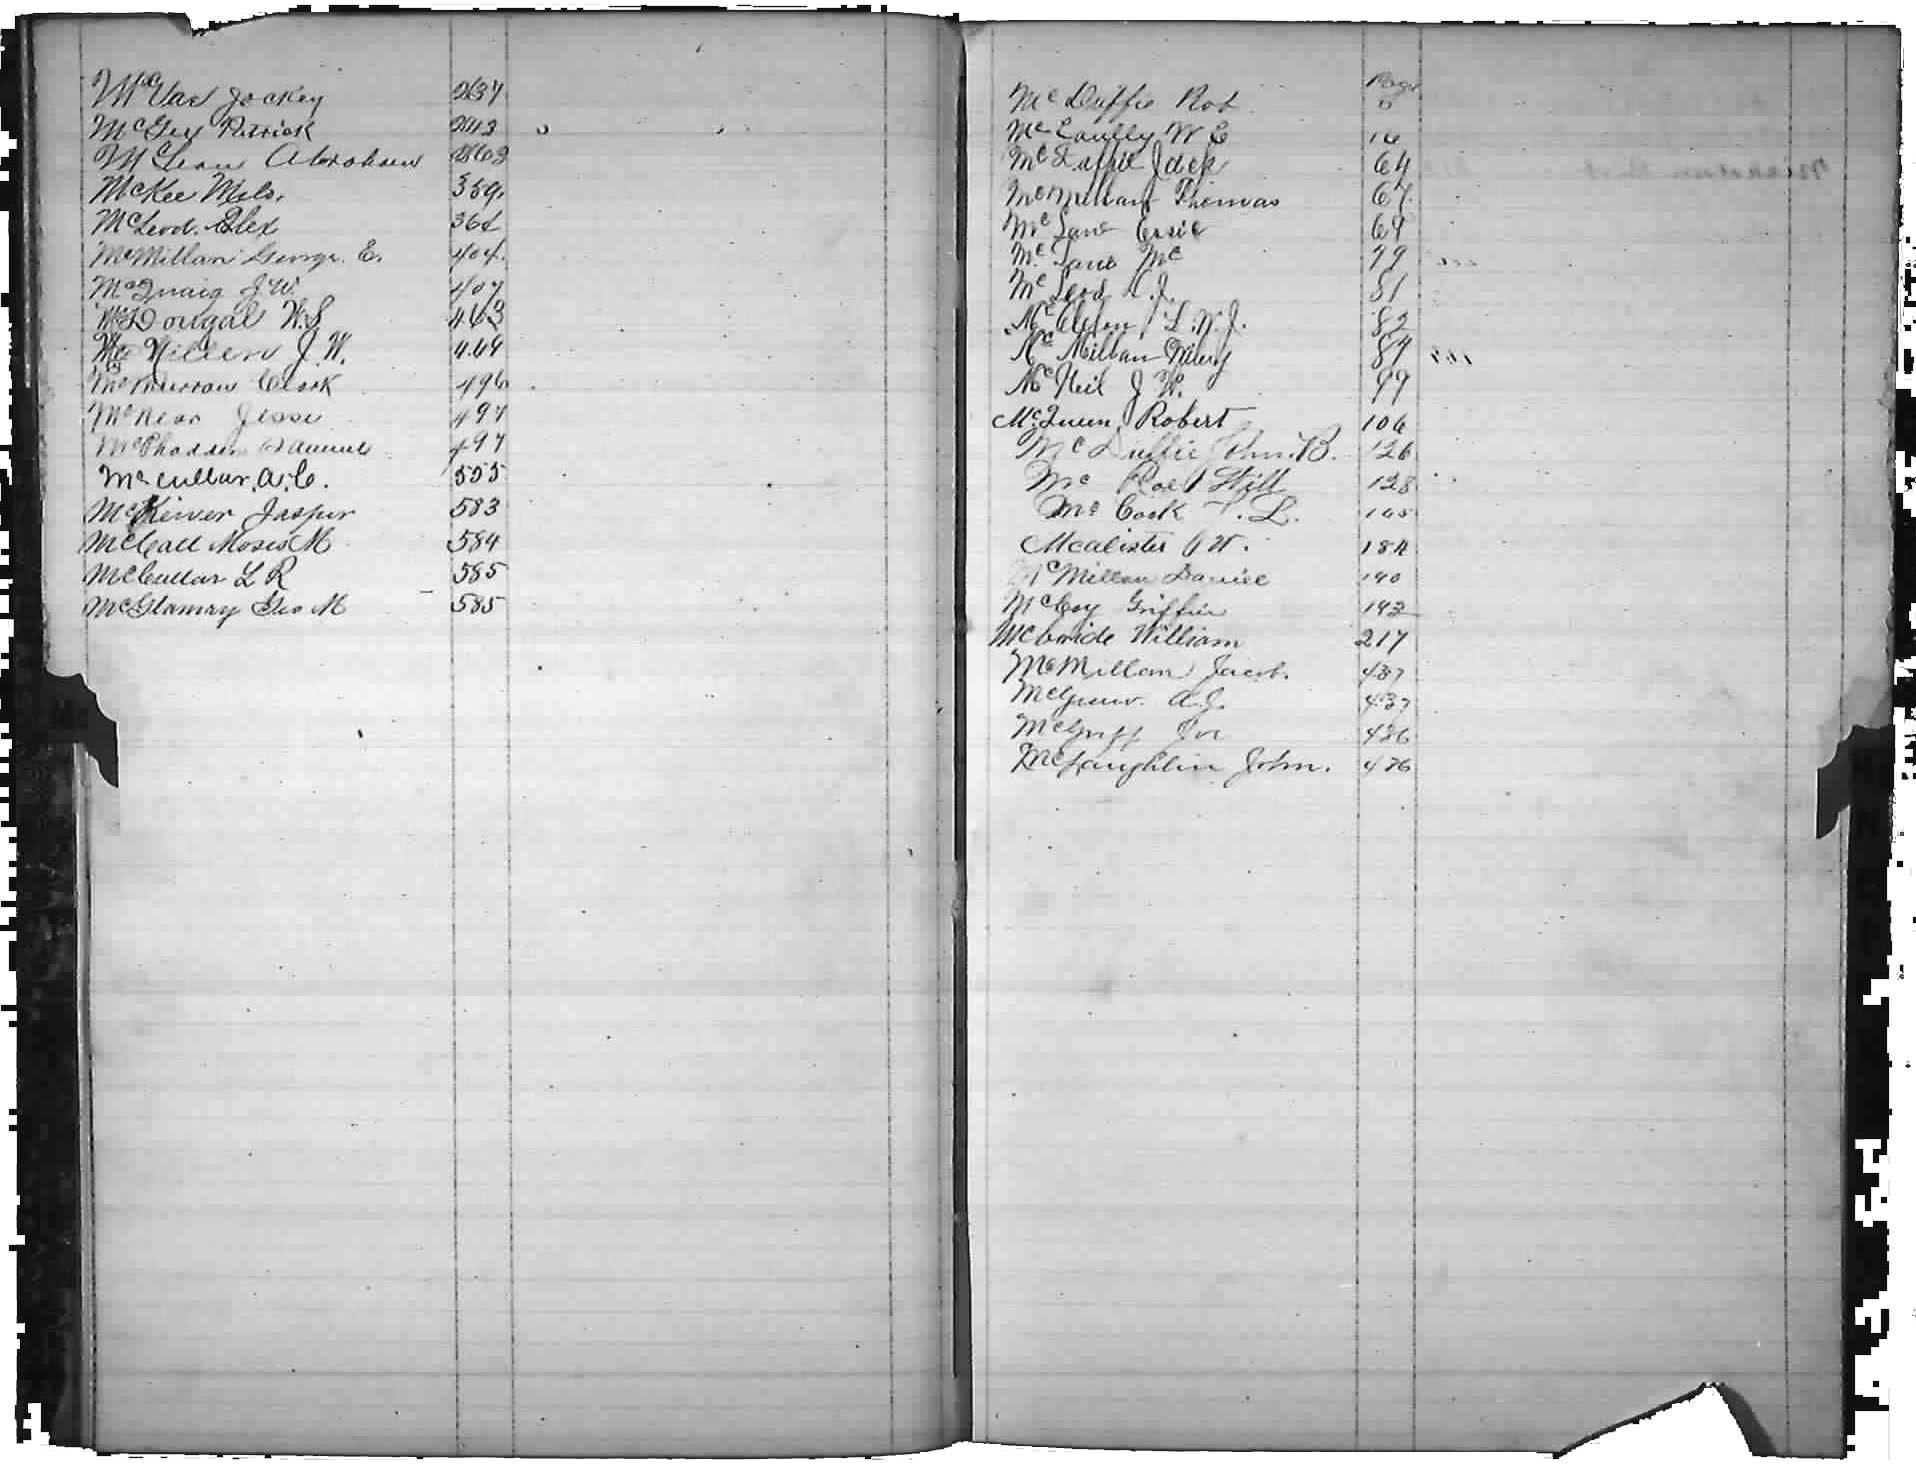 McVae Jockey 2637
McGey Patrick 2643
McLean Abraham
McKee Mils. 359.
McLeod. Alex
McMillan George. E. 404.
McQuaig J. W. 407
McDougal W. S 463
Mc Nillen J. W. 464
McMurran Clark 496
McNear Jesse 497
McPhadden Samuel 497
McCullar. A. C. 555
McKeiver Jasper 583
McCall Moses M 584
McCullar L R 585
McGlamry Geo M 585
Page
McDuffie Rob
McCaully W E 16
McDuffie Jack 64
McMillan Thomas 67
McLane Essie 69
McLane Mc 79
McLeod A. J. 81
L. N. J. 82
McMillan Wiley 87
McNeil J. W. 99
McQueen Robert 106
McDuffie John. B. 126
McRae Still 128
McCook T. L. 145
Mcalister W. 184
McMillan Daniel 190
McCoy Griffin 192
McBride William 217
McMillan Jacob. 437
McGrew. A. J. 437
McGriff Joe 426
McLaughlin John. 476